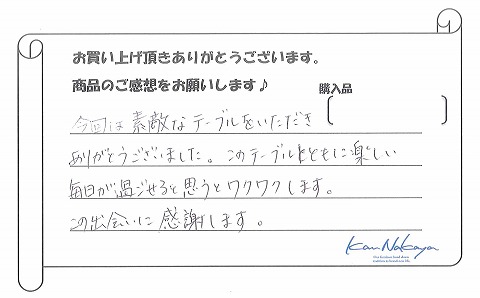 お買い上げ頂きありがとうございます。
商品のご感想をお願いします♪
購入品
今回は素敵なテーブルをいただき
ありがとうございました。このテーブルとともに楽しい
毎日が過ごせると思うとワクワクします。
この出会いに感謝します。
KanNakaya